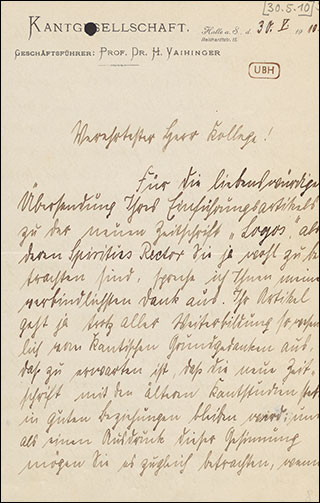 [30.5.10]
KANTGESELLSCHAFT.
Halle a. S., d. 30. V. 1910.
Reichardtstr. 15.
GESCHÄFTSFÜHRER: PROF. DR. H. VAIHINGER
UBH
Verehrtester Herr Kollege!
Für die liebenswürdige
Übersendung Ihres Einführungsartikels
zu der neuen Zeitschrift „Logos", als
deren Spiritus Rector Sie ja wohl zu be-
trachten sind, spreche ich Ihnen meinen
verbindlichsten Dank aus. Ihr Artikel
geht ja trotz aller Weiterbildung so wesent-
lich vom kantischen Grundgedanken aus,
daß zu erwarten ist, daß die neue Zeit-
schrift mit den ältern Kantstudien stets
in guten Beziehungen bleiben wird; und
als einen Ausdruck dieser Gesinnung
mögen Sie es zugleich betrachten, wenn